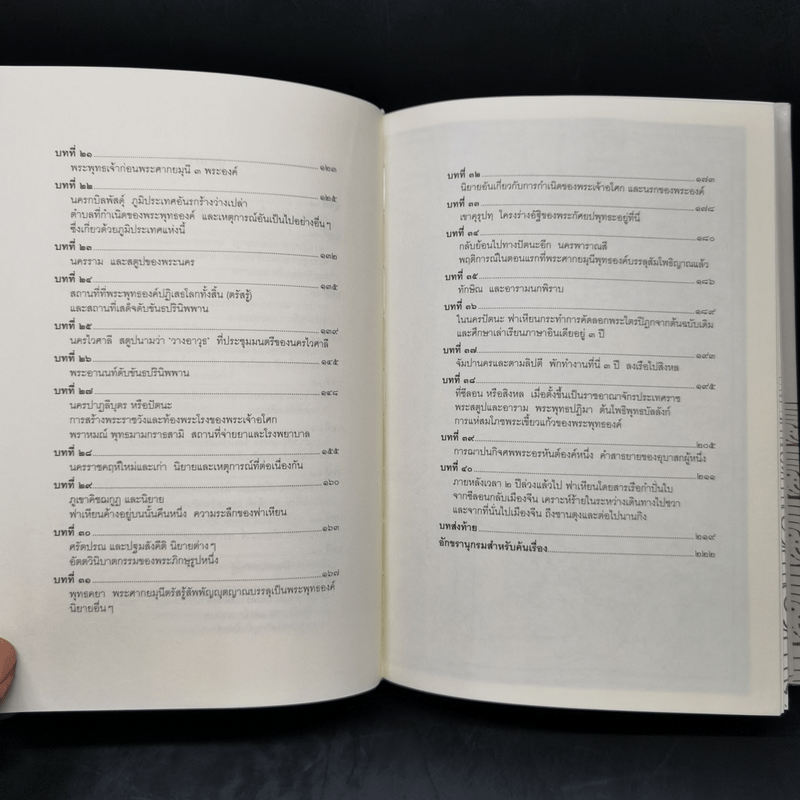 บทที่ ๒๑ ๑๒๓
พระพุทธเจ้าก่อนพระศากยมุนี ๓ พระองค์
บทที่ ๒๒ ๑๒๕
นครกบิลพัสดุ์ ภูมิประเทศอันรกร้างว่างเปล่า
ตำบลที่กำเนิดของพระพุทธองค์ และเหตุการณ์อันเป็นไปอย่างอื่นๆ
ซึ่งเกี่ยวด้วยภูมิประเทศแห่งนี้
บทที่ ๒๓ ๑๓๒
นครราม และสตูปของพระนคร
บทที่ ๒๔ ๑๓๕
สถานที่ที่พระพุทธองค์ปฏิเสธโลกทั้งสิ้น (ตรัสรู้)
และสถานที่เสด็จดับขันธปรินิพพาน
บทที่ ๒๕ ๑๓๙
นครไวศาลี สตูปนามว่า 'วางอาวุธ' ที่ประชุมมนตรีของนครไวศาลี
บทที่ ๒๖ ๑๔๕
พระอานนท์ดับขันธปรินิพพาน
บทที่ ๒๗ ๑๔๘
นครปาฏลีบุตร หรือปัตนะ
การสร้างพระราชวังและท้องพระโรงของพระเจ้าอโศก
พราหมณ์ พุทธมามกราธสามิ สถานที่จ่ายยาและโรงพยาบาล
บทที่ ๒๘ ๑๕๕
นครราชคฤห์ใหม่และเก่า นิยายและเหตุการณ์ที่ต่อเนื่องกัน
บทที่ ๒๙ ๑๖๐
ภูเขาคิชฌกูฏ และนิยาย
ฟาเหียนค้างอยู่บนนั้นคืนหนึ่ง ความระลึกของฟาเหียน
บทที่ ๓๐ ๑๖๓
ศรัตปรณ และปฐมสังคีติ นิยายต่างๆ
อัตตวินิบาตกรรมของพระภิกษุรูปหนึ่ง
บทที่ ๓๑ ๑๖๗
พุทธคยา พระศากยมุนีตรัสรู้สัพพัญญุตญาณบรรลุเป็นพระพุทธองค์
นิยายอื่นๆ
บทที่ ๓๒ ๑๗๓
นิยายอันเกี่ยวกับการกำเนิดของพระเจ้าอโศก และนรกของพระองค์
บทที่ ๓๓ ๑๗๘
เขาคุรุปทุ โครงร่างอัฐิของพระกัศยปพุทธะอยู่ที่นี่
บทที่ ๓๔ ๑๘๐
กลับย้อนไปทางปัตนะอีก นครพาราณสี
พฤติการณ์ในตอนแรกที่พระศากยมุนีพุทธองค์บรรลุสัมโพธิญาณแล้ว
บทที่ ๓๕ ๑๘๖
ทักษิณ และอารามนกพิราบ
บทที่ ๓๖ ๑๘๙
ในนครปัตนะ ฟาเหียนกระทำการคัดลอกพระไตรปิฎกจากต้นฉบับเดิม
และศึกษาเล่าเรียนภาษาอินเดียอยู่ ๓ ปี
บทที่ ๓๗ ๑๙๓
จัมปานครและตามลิปติ พักทำงานที่นี่ ๓ ปี ลงเรือไปสิงหล
บทที่ ๓๘ ๑๙๕
ที่ซีลอน หรือสิงหล เมื่อตั้งขึ้นเป็นราชอาณาจักรประเทศราช
พระสตูปและอาราม พระพุทธปฏิมา ต้นโพธิพุทธบัลลังก์
การแห่สมโภชพระเขี้ยวแก้วของพระพุทธองค์
บทที่ ๓๙ ๒๐๕
การฌาปนกิจศพพระอรหันต์องค์หนึ่ง คำสาธยายของอุบาสกผู้หนึ่ง
บทที่ ๔๐ ๒๑๑
ภายหลังเวลา ๒ ปีล่วงแล้วไป ฟาเหียนโดยสารเรือกำปั่นใบ
จากซีลอนกลับเมืองจีน เคราะห์ร้ายในระหว่างเดินทางไปชวา
และจากที่นั่นไปเมืองจีน ถึงชานตุงและต่อไปนานกิง
บทส่งท้าย ๒๑๙
อักขรานุกรมสำหรับค้นเรื่อง ๒๒๒